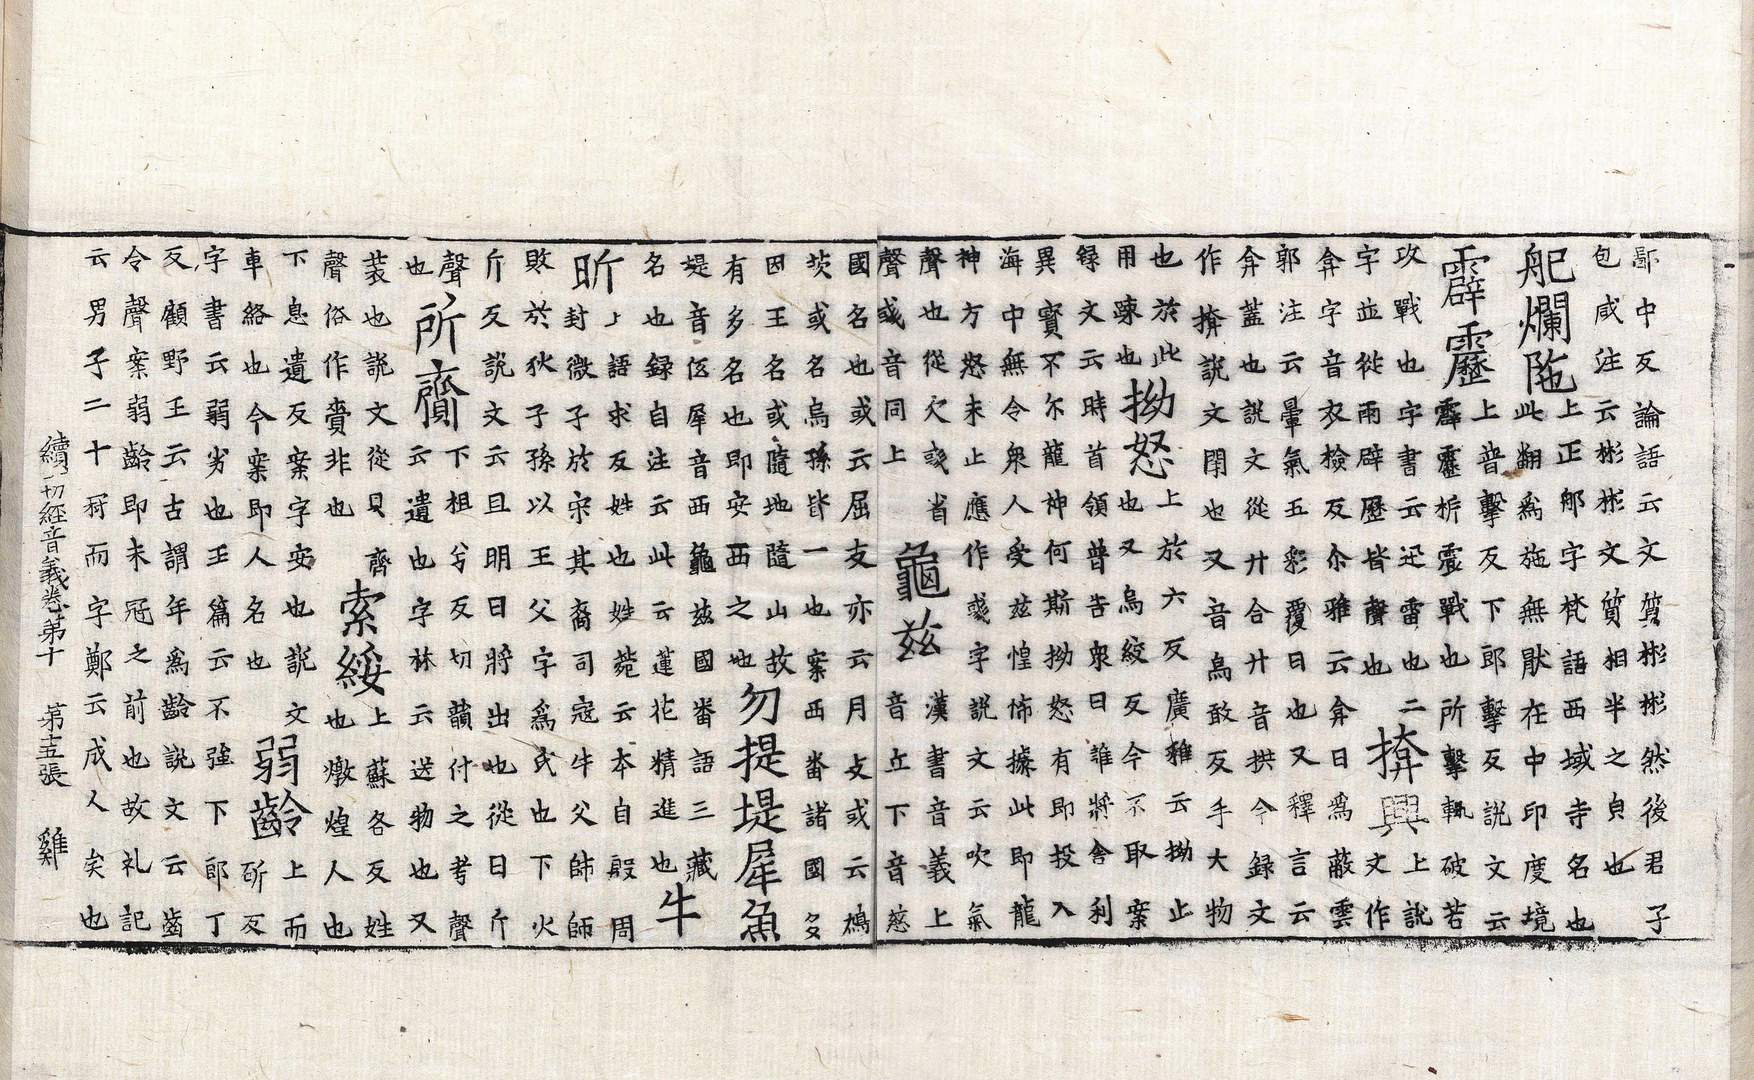 鄙中反論語云文質彬彬然後君子
包咸注云彬彬文質相半之貞也
舥爛陁
上正舥字梵語西域寺名也
此翻爲施無猒在中印度境
霹靂
上普擊反下郎擊反説文云
霹靂析震戰也所擊輒破若
攻戰也字書云迅雷也二
字並從雨辟歷皆聲也
揜興
上説
文作
弇字音衣檢反尒雅云弇日爲蔽雲
郭注云暈氣五彩覆日也又釋言云
弇蓋也説文從廾合廾音拱今録文
作揜説文閉也又音烏敢反手大物
也於此
用踈也
拗怒
上於六反廣雅云拗止
也又烏絞反今不取案
録文云時首領普告衆曰誰將舍利
異寳不尒龍神何斯拗怒有即投入
海中無令衆人受兹惶怖據此即龍
神方怒未止應作字説文云吹氣
聲也從欠或省
聲或音同上
龜兹
漢書音義上
音丘下音慈
國名也或云屈支亦云月支或云鵂
茨或名烏孫皆一也案西畨諸國多
因王名或隨地隨山故
有多名也即安西之地
勿提堤犀魚
堤音伭犀音西龜兹國畨語三藏
名也録自注云此云蓮花精進也
牛昕
上語求反姓也姓菀云本自殷周
封微子於宋其裔司寇牛父帥師
敗於狄子孫以王父字爲氏也下火
斤反説文云且明日將出也從日斤
聲
也
所齎
下祖兮反切韻付之考聲
云遺也字林云送物也又
裝也説文從貝齊
聲俗作賷非也
索綏
上蘇各反姓
也燉煌人也
下息遺反案字安也説文
車絡也今案即人名也
弱齡
上而
斫反
字書云弱劣也玉篇云不強下郎丁
反顧野王云古謂年爲齡説文云齒
令聲案弱齡即未冠之前也故礼記
云男子二十冠而字鄭云成人矣也
續一切經音義卷第十 第十五張 雞